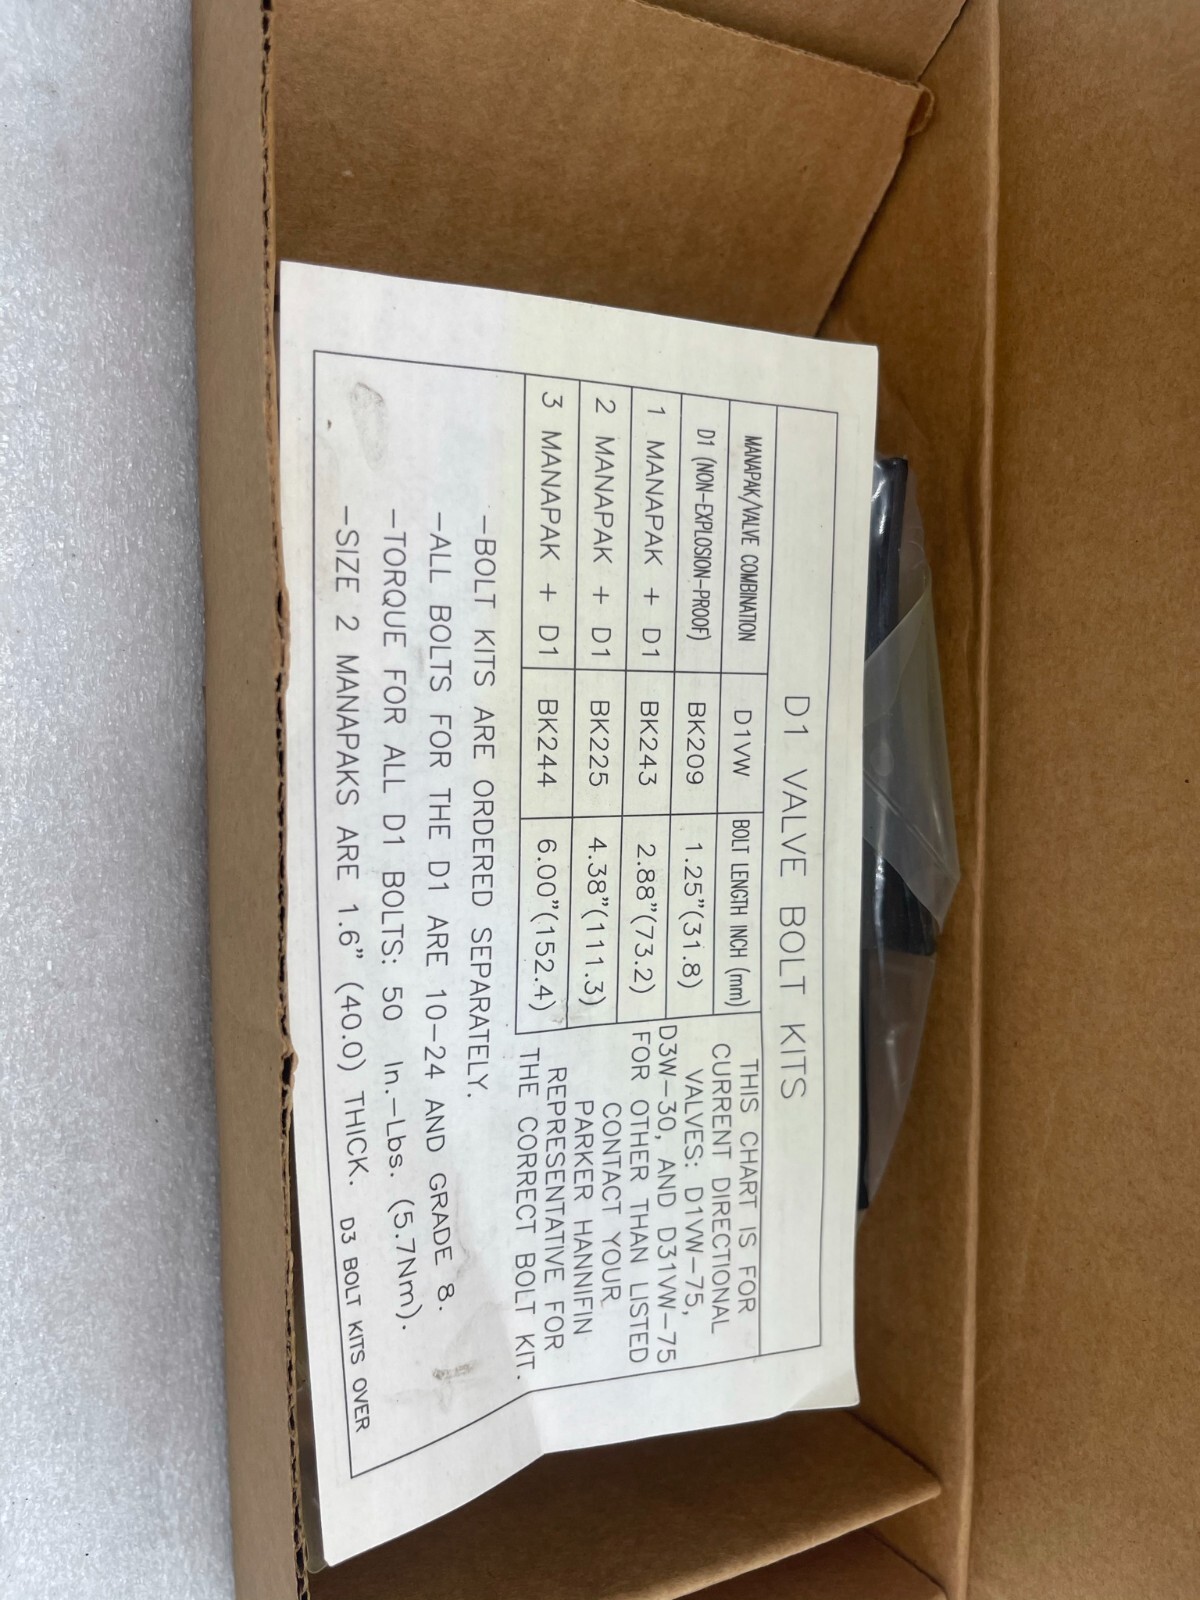 D1 VALVE BOLT KITS
MANAPAK/VALVE COMBINATION D1VW BOLT LENGTH INCH (mm)
D1 (NON-EXPLOSION-PROOF) BK209 1.25"(31.8)
1 MANAPAK + D1 BK243 2.88"(73.2)
2 MANAPAK + D1 BK225 4.38"(111.3)
3 MANAPAK + D1 BK244 6.00"(152.4)
THIS CHART IS FOR
CURRENT DIRECTIONAL
VALVES: D1VW-75,
D3W-30, AND D31VW-75
FOR OTHER THAN LISTED
CONTACT YOUR
PARKER HANNIFIN
REPRESENTATIVE FOR
THE CORRECT BOLT KIT.
-BOLT KITS ARE ORDERED SEPARATELY.
-ALL BOLTS FOR THE D1 ARE 10-24 AND GRADE 8.
-TORQUE FOR ALL D1 BOLTS: 50 In.-Lbs. (5.7Nm).
-SIZE 2 MANAPAKS ARE 1.6" (40.0) THICK. D3 BOLT KITS OVER